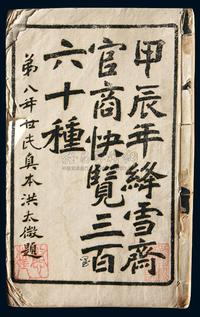 甲辰年絳雪齋
官商快覽三百
六十種
第八年世民真本洪太微題